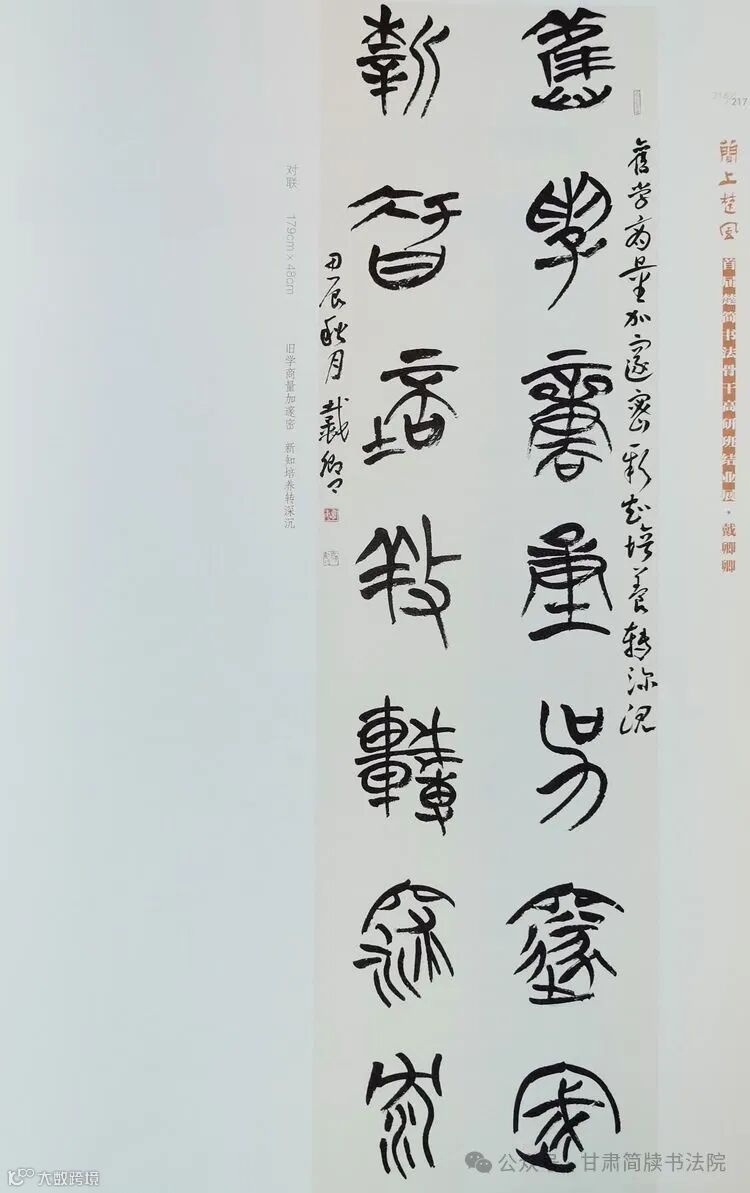 舊學商量加邃密
新智培養轉深沉
舊學商量加邃密 新知培養轉深沉
甲辰秋月 戴卿卿
217
簡上楚風
首届楚简书法骨干高研班结业展·戴卿卿
对联 179cm×48cm 旧学商量加邃密 新知培养转深沉
公众号·甘肃简牍书法院
大数跨境